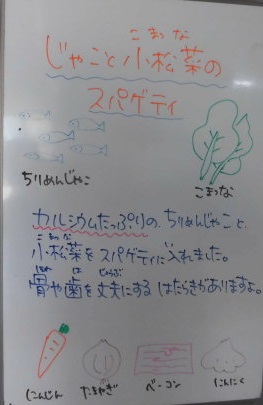 こまつな
じゃこと小松菜の
スパゲティ
ちりめんじゃこ
こまつな
カルシウムたっぷりの ちりめんじゃこと、
こまつな
小松菜をスパゲティに入れました。
ほね は じょうぶ
骨や歯を丈夫にする はたらきがありますよ。
にんじん
たまねぎ
ベーコン
にんにく